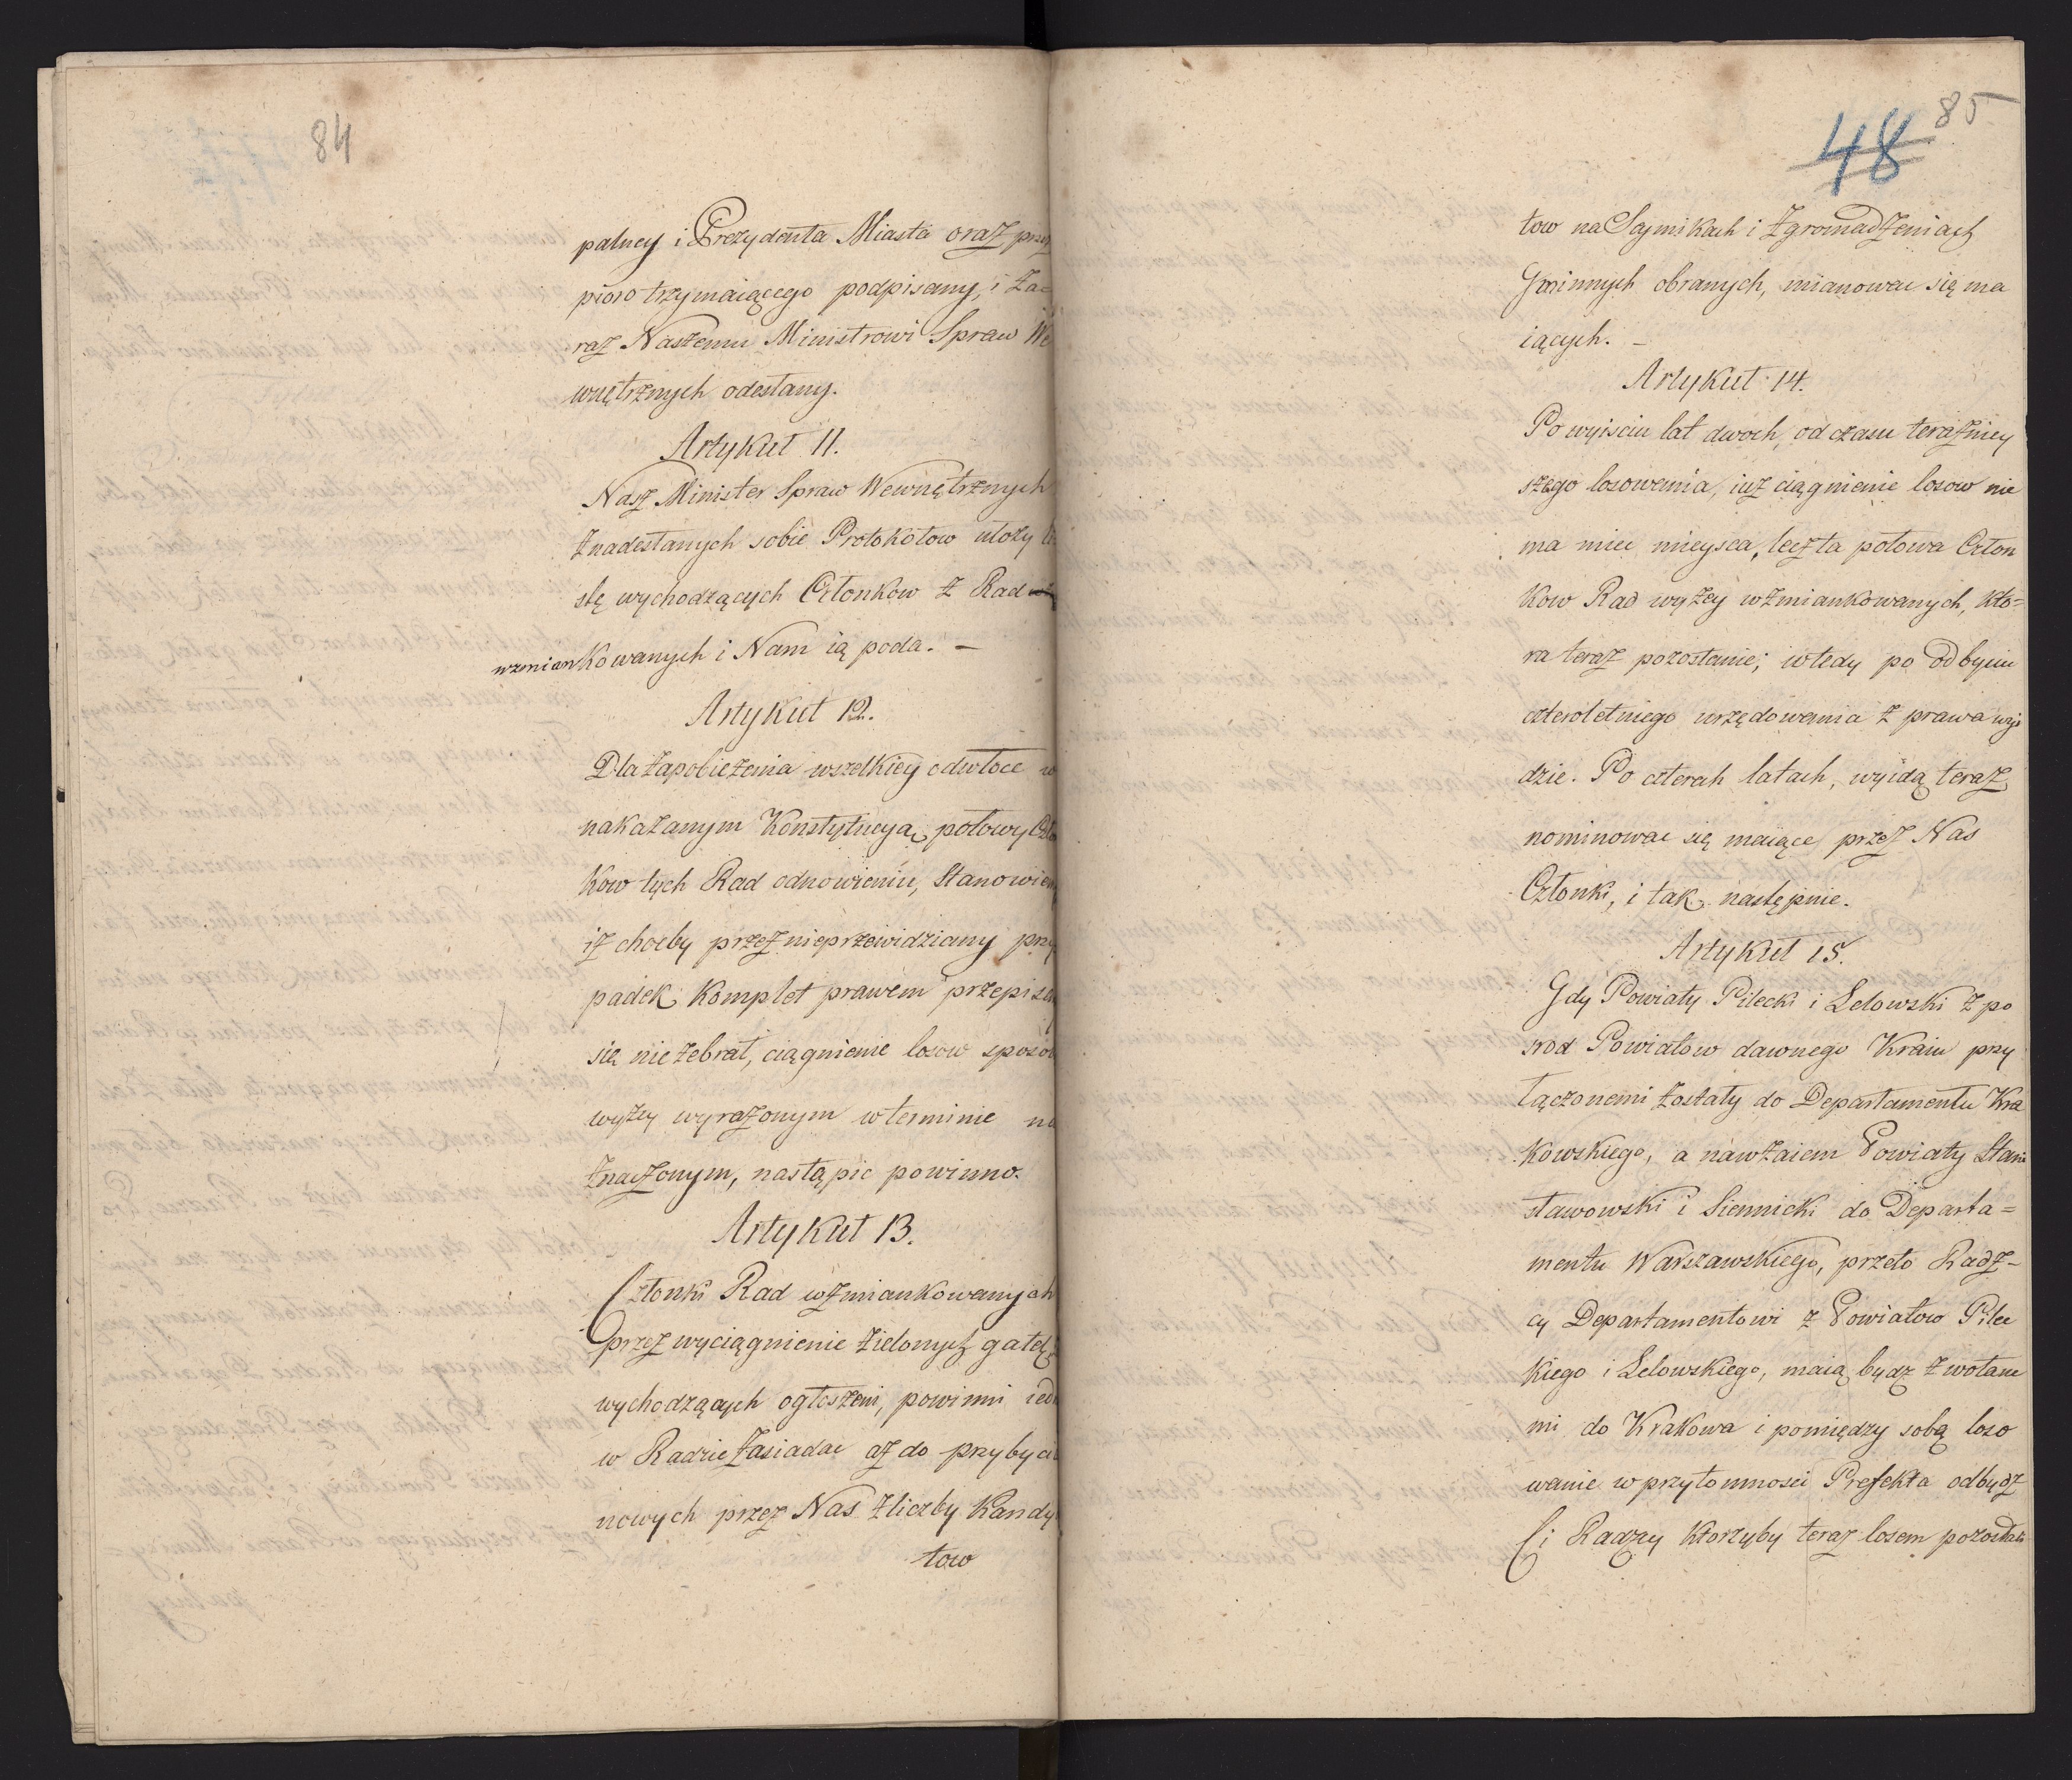 84
palney i Prezydenta Miasta oraz przez
pioro trzymaiącego podpisany, i Za=
raz Naszemu Ministrowi Spraw We
wnętrznych odesłany.
Artykuł 11.
Nasz Minister Spraw Wewnętrznych
z nadesłanych sobie Protokołow ułoży li
stę wychodzących Członkow z Rad
wzmiankowanych i Nam ią poda. –
Artykuł 12.
Dla zapobieżenia wszelkiey odwłoce w
nakazanym Konstytucyą połowy Czło
kow tych Rad odnowieniu, Stanowiem
iż choćby przez nieprzewidziany przy
padek Komplet prawem przepisan
się nie zebrał, ciągnienie losow sposob
wyżey wyrażonym w terminie na
znaczonym, nastąpic powinno.
Artykuł 13.
Członki Rad wzmiankowanych
przez wyciągnienie zielonych gałek
wychodzących ogłoszeni, powinni iedn
w Radzie Zasiadac aż do przybyci
nowych przez Nas z liczby Kandy
tow
85
48
tow na Saymikach i Zgromadzeniach
Gminnych obranych, mianowac się ma
iących. –
Artykuł 14.
Po wyisciu lat dwoch, od czasu teraźniey
szego losowania, iuż ciągnienie losow nie
ma miec mieysca, lecz ta połowa Człon
kow Rad wyżey wzmiankowanych, kto=
ra teraz pozostanie; wtedy po odbyciu
czteroletniego urzędowania z prawa wyi
dzie. Po czterech latach, wyidą teraz
nominowac się maiące przez Nas
Członki, i tak następnie.
Artykuł 15.
Gdy Powiaty Pilecki i Lelowski z po
srod Powiatow dawnego Kraiu przy
łączonemi zostały do Departamentu Kra
kowskiego, a nawzaiem Powiaty Stani
sławowski i Siennicki do Departa=
mentu Warszawskiego, przeto Radz-
cy Departamentowi z Powiatow Pilec
kiego i Lelowskiego, maią bydz zwołane
mi do Krakowa i pomiędzy sobą loso
wanie w przytomnosci Prefekta odbydz
Ci Radzcy ktorzyby teraz losem pozostali